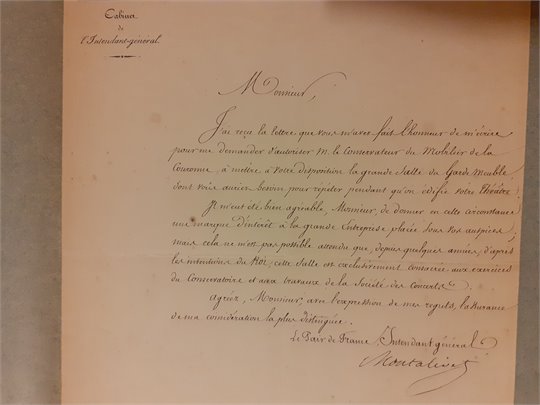 Cabinet
de
l'Intendant-général.
Monsieur,
J'ai reçu la lettre que vous m'avez fait l'honneur de m'écrire
pour me demander d'autoriser M. le Conservateur du Mobilier de la
Couronne à mettre à votre disposition la grande Salle du Garde Meuble
dont vous auriez besoin pour répéter pendant qu'on édifie votre Théâtre.
Il m'eut été bien agréable, Monsieur, de donner en cette circonstance
une marque d'intérêt à la grande Entreprise placée sous vos auspices;
mais cela ne m'est pas possible attendu que, depuis quelques années, d'après
les intentions du Roi, cette Salle est exclusivement consacrée aux exercices
du Conservatoire et aux travaux de la Société des Concerts.
Agréez, Monsieur, avec l'expression de mes regrets, l'assurance
de ma considération la plus distinguée.
Le Pair de France, Intendant général
Montalivet